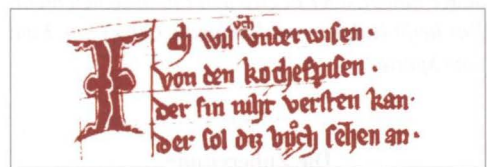 Ich wil uͦch vnderwisen ·
von den kochespisen ·
der sin niht versten kan·
der sol diz bůch sehen an ·